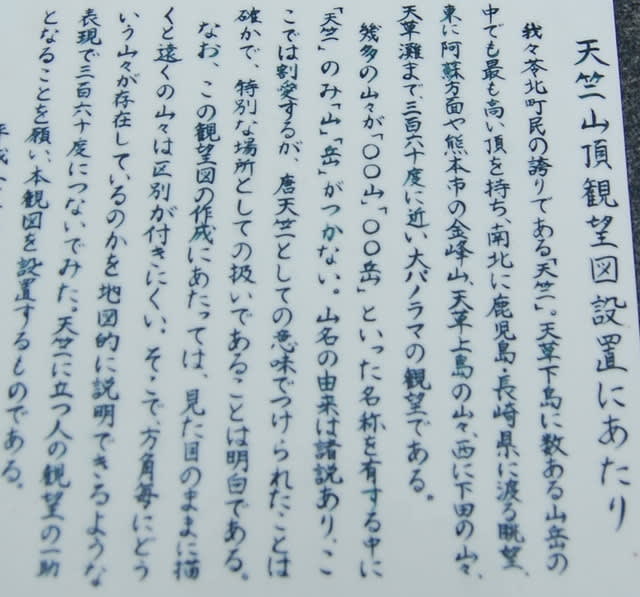 天竺山頂観望図設置にあたり
我々苓北町民の誇りである「天竺」。天草下島に数ある山岳の
中でも最も高い頂を持ち、南北に鹿児島・長崎県に渡る眺望、
東に阿蘇方面や熊本市の金峰山、天草上島の山々、西に下田の山々、
天草灘まで、三百六十度に近い大パノラマの観望である。
幾多の山々が「〇〇山」「〇〇岳」といった名称を有する中に
「天竺」のみ「山」「岳」がつかない。山名の由来は諸説あり、こ
こでは割愛するが、唐天竺としての意味でつけられたことは
確かで、特別な場所としての扱いであることは明白である。
なお、この観望図の作成にあたっては、見た目のままに描
くと遠くの山々は区別が付きにくい、そこで、方角毎にどう
いう山々が存在しているのかを地図的に説明できるような
表現で三百六十度につないでみた。天竺に立つ人の観望の一助
となることを願い、本観図を設置するものである。
平成